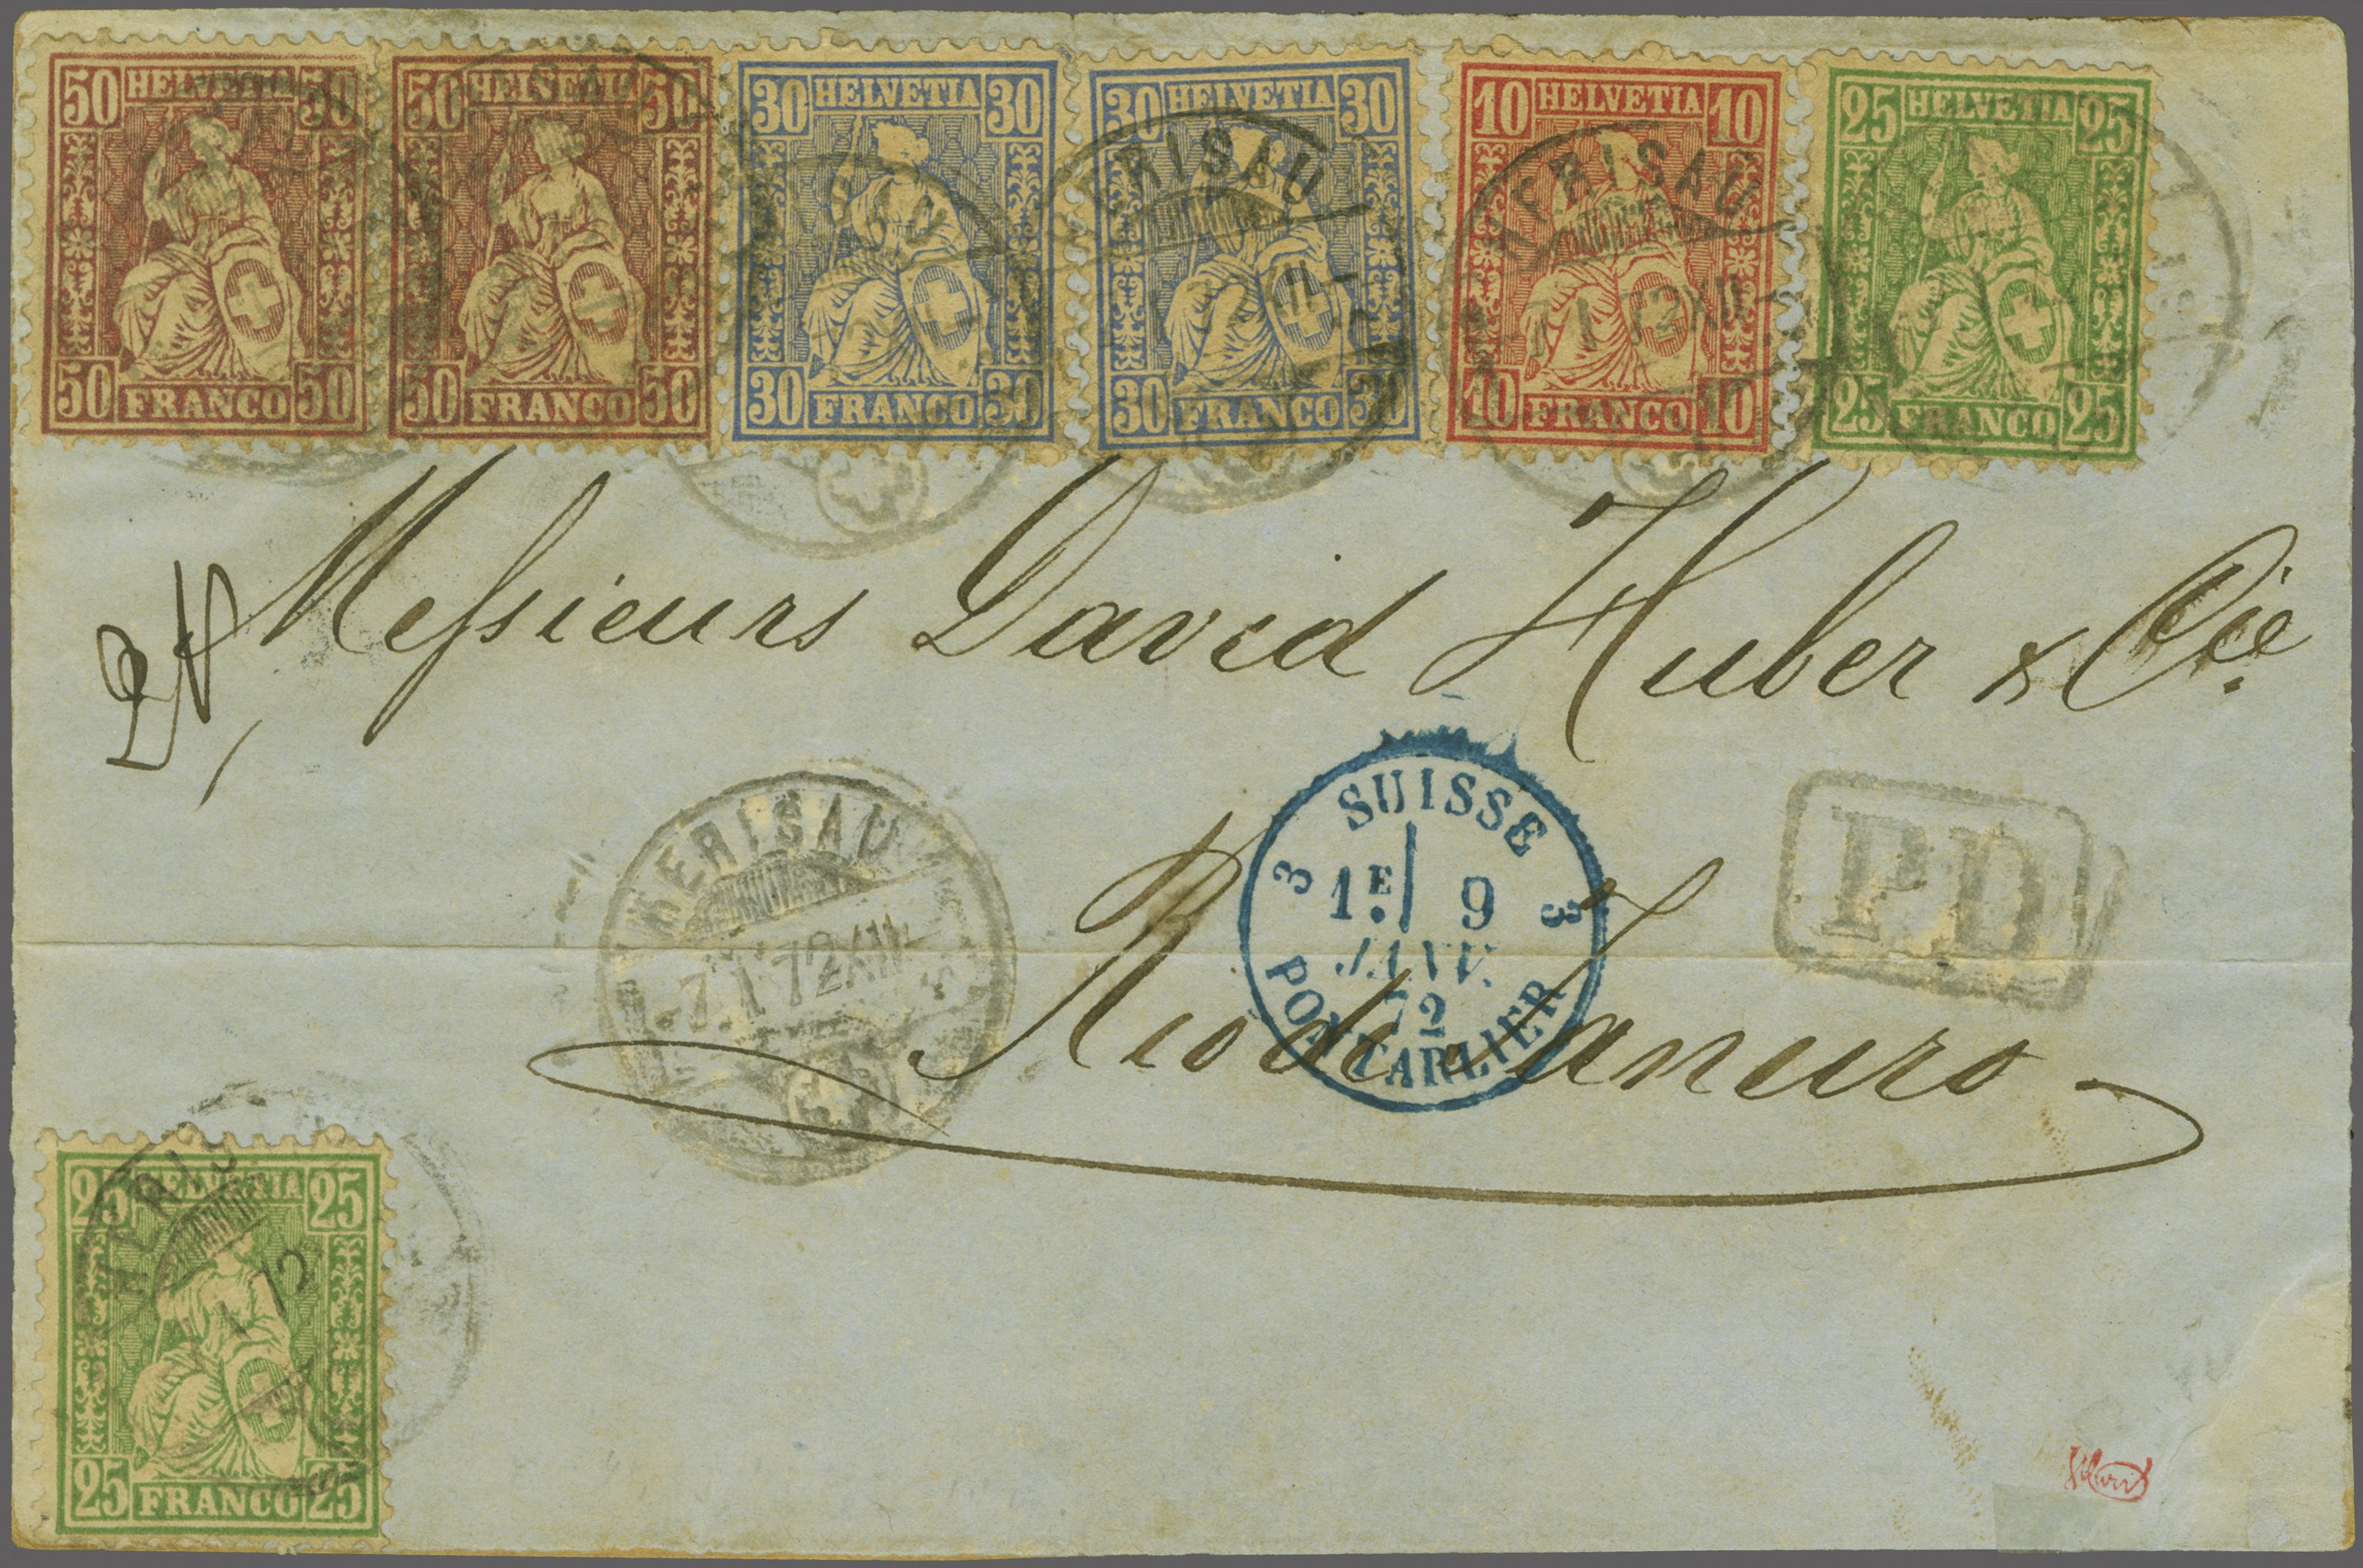 50 HELVETIA 50
50 FRANCO 50
50 HELVETIA 50
50 FRANCO 50
30 HELVETIA 30
30 FRANCO 30
30 HELVETIA 30
30 FRANCO 30
10 HELVETIA 10
10 FRANCO 10
25 HELVETIA 25
25 FRANCO 25
HERISAU
HERISAU
Messieurs David Huber & Cie
HERISAU
7.I 72 XII
SUISSE
3 1E. 9 3
JANV.
72
PONTARLIER
P.D.
Rio de Janeiro
25 HELVETIA 25
25 FRANCO 25